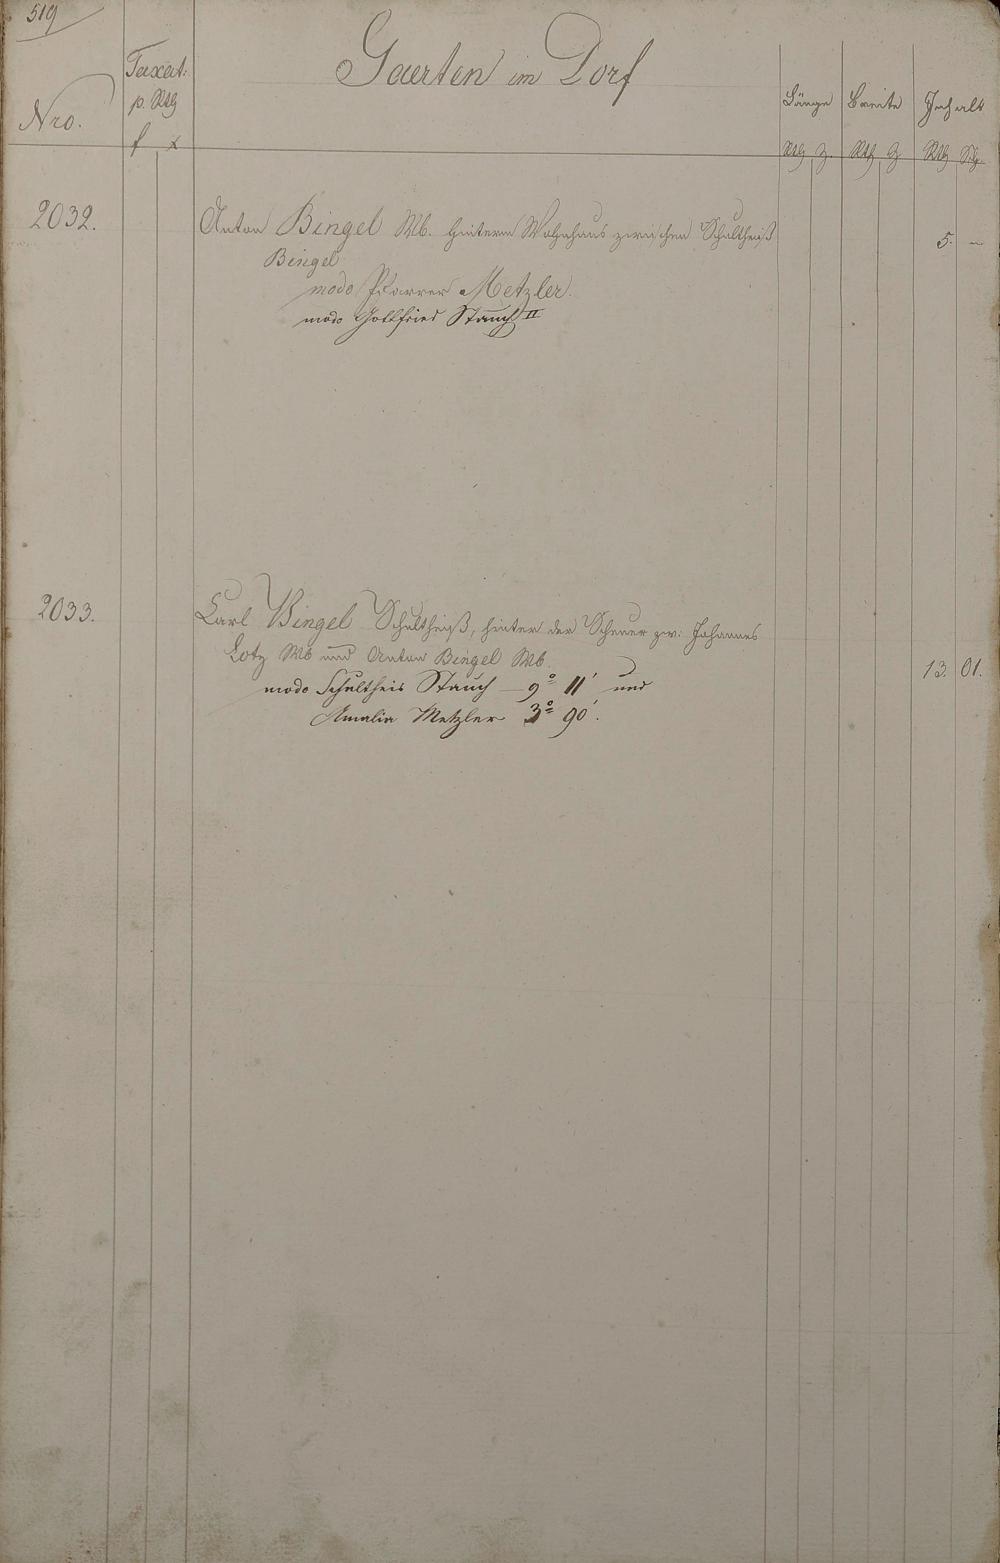 519
Gaerten im Dorf
Nro.
Taxat:
p. Rth
f x
Länge Breite Inhalt
Rth Rth Rth Sch
2032. Anton Bingel Wb. hinterm Wohnhaus zwischen Schultheiß 5. –
Bingel
modo Pfarrer Metzler.
modo Gottfried Stauch II
2033. Carl Bingel Schultheiß, hinter der Scheuer zw: Johannes
Lotz Wb und Anton Bingel Wb. 13. 01.
modo Schultheis Stauch – 9° 11' und
Amalia Metzler 3° 90'.